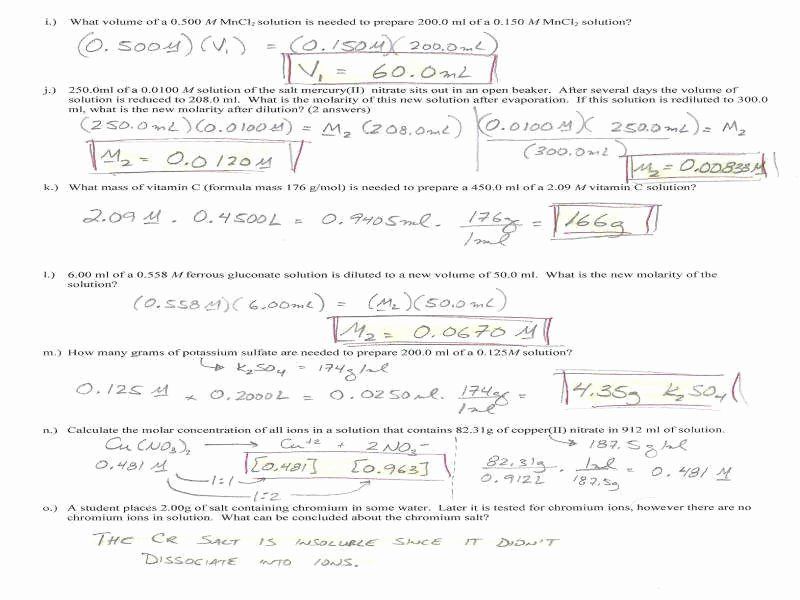 i.) What volume of a 0.500 M MnCl₂ solution is needed to prepare 200.0 ml of a 0.150 M MnCl₂ solution?
(0.500M)(V₁) = (0.150M)(200.0mL)
V₁ = 60.0mL
j.) 250.0ml of a 0.0100 M solution of the salt mercury(II) nitrate sits out in an open beaker. After several days the volume of
solution is reduced to 208.0 ml. What is the molarity of this new solution after evaporation. If this solution is rediluted to 300.0
ml, what is the new molarity after dilution? (2 answers)
(250.0mL)(0.0100M) = M₂ (208.0mL) (0.0100M)( 250.0mL) = M₂
(300.0mL)
M₂ = 0.0120M M₂ = 0.00833M
k.) What mass of vitamin C (formula mass 176 g/mol) is needed to prepare a 450.0 ml of a 2.09 M vitamin C solution?
2.09 M . 0.4500L = 0.9405ml . 176g = 166g
1ml
l.) 6.00 ml of a 0.558 M ferrous gluconate solution is diluted to a new volume of 50.0 ml. What is the new molarity of the
solution?
(0.558M)(6.00mL) = (M₂)(50.0mL)
M₂ = 0.0670 M
m.) How many grams of potassium sulfate are needed to prepare 200.0 ml of a 0.125M solution?
K₂SO₄ = 174g/ml
0.125 M x 0.2000L = 0.0250ml . 174g = 4.35g K₂SO₄
1ml
n.) Calculate the molar concentration of all ions in a solution that contains 82.31g of copper(II) nitrate in 912 ml of solution.
Cu(NO₃)₂ → Cu⁺² + 2NO₃⁻ 187.5g/ml
0.481 M [0.481] [0.963] 82.31g . 1ml = 0.481 M
0.912L 187.5g
1:1
1:2
o.) A student places 2.00g of salt containing chromium in some water. Later it is tested for chromium ions, however there are no
chromium ions in solution. What can be concluded about the chromium salt?
THE CR SALT IS INSOLUBLE SINCE IT DIDN'T
DISSOCIATE INTO IONS.